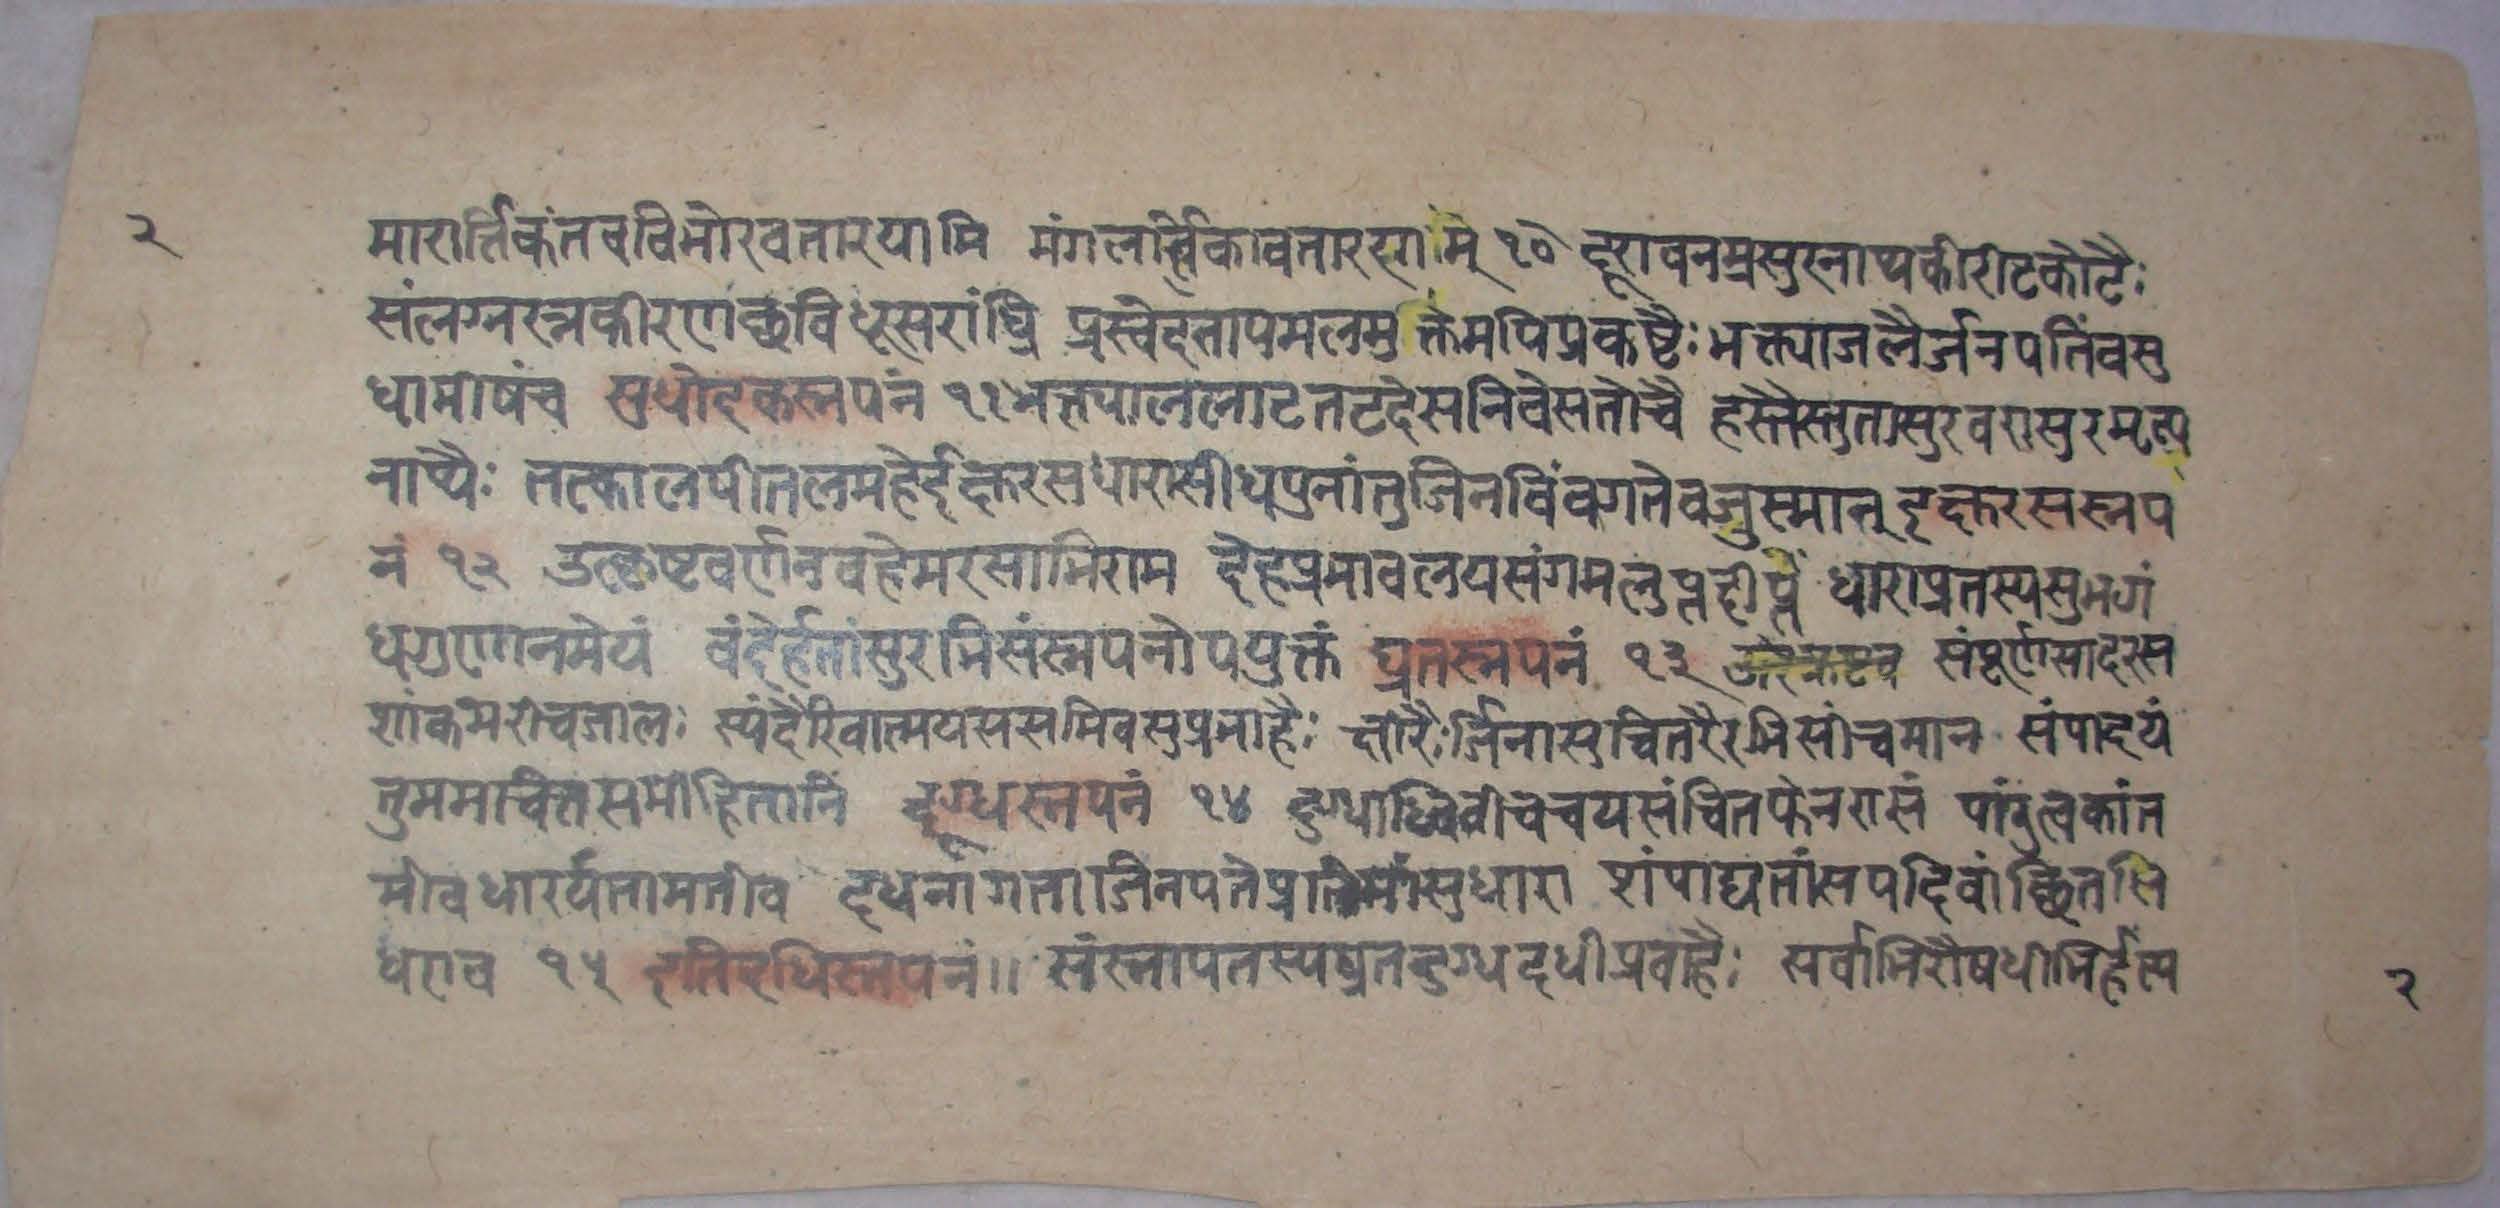 २
मारार्त्तिकंतवविभोरवतारयामि मंगलार्त्तिकावतारणम् १० दूरावनम्रसुरनाथकीरीटकोटैः
संलग्नरत्नकीरणच्छविधूसरांघ्रि प्रस्वेदतापमलमुक्तमपिप्रकष्टैः भक्त्याजलैर्जनपतिंवसु
धाभीषंच सुधोदकस्नपनं ११ भक्त्याललाटतटदेसनिवेसतोचै हस्तैस्तुतासुरवरासुरमृत्य
नाथैः तत्कालपीतलमहेर्इक्षुरसधारासीधपुनांतुजिनविंवगतेवजुस्मान् इक्षुरसस्नप
नं १२ उत्कृष्टवर्णनवहेमरसाभिराम देहप्रभावलयसंगमलुप्तदीप्तिं धाराघ्रतस्यसुभगं
धगुणानमेयं वंदेर्हतांसुरभिसंस्नपनोपयुक्तं घ्रतस्नपनं १३ संपूर्णसादरस
शांकमरीचजाल: स्यंदैरिवात्मयससमिवसुप्रभाहैः क्षीरैःर्जिनासुचितरैरभिसींचमान संपादयं
तुममचित्तसमीहितानि दूग्धस्नपनं १४ दुग्धाब्धिवीचचयसंचितफेनरासं पांडुत्वकांत
मीवधारर्यतामतीव दध्नागताजिनपतेप्रतिमांसुधारा शंपाद्यतांसपदिवांछितसि
धराव १५ इतिदधिस्नपनं॥ संस्नापतस्यघ्रतदुग्धदधीप्रवाहैः सर्वाभिरौषधीभिर्हत्प
२